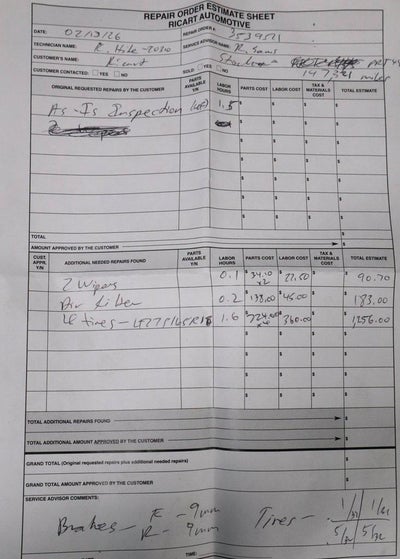 REPAIR ORDER ESTIMATE SHEET
RICART AUTOMOTIVE
DATE: 02/13/26 REPAIR ORDER #: 3539521
TECHNICIAN NAME: SERVICE ADVISOR NAME:
CUSTOMER'S NAME: Ricart
CUSTOMER CONTACTED: YES NO SOLD: YES NO miles
ORIGINAL REQUESTED REPAIRS BY THE CUSTOMER PARTS AVAILABLE Y/N LABOR HOURS PARTS COST LABOR COST TAX & MATERIALS COST TOTAL ESTIMATE
As-Is Inspection 1.5 $ $ $ $
TOTAL
AMOUNT APPROVED BY THE CUSTOMER $
CUST. APPR. Y/N ADDITIONAL NEEDED REPAIRS FOUND PARTS AVAILABLE Y/N LABOR HOURS PARTS COST LABOR COST TAX & MATERIALS COST TOTAL ESTIMATE
2 Wipers 0.1 $34.10 x2 $22.50 $ $90.70
Air Filter 0.2 $138.00 $45.00 $ $183.00
4 tires - 1.6 $224.00 x4 $360.00 $ $1256.00
TOTAL ADDITIONAL REPAIRS FOUND $
TOTAL ADDITIONAL AMOUNT APPROVED BY THE CUSTOMER $
GRAND TOTAL (Original requested repairs plus additional needed repairs) $
GRAND TOTAL AMOUNT APPROVED BY THE CUSTOMER $
SERVICE ADVISOR COMMENTS:
Brakes - F - 9mm Tires - 1/32
R - 9mm 5/32 5/32
TIME: